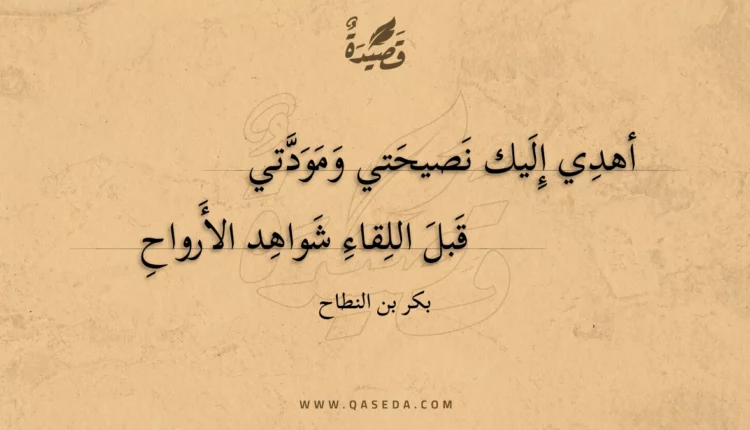 قَصِيْدَةٌ
أهدِي إِلَيك نَصيحَتي وَمَوَدَّتي
قَبلَ اللِقاءِ شَواهِد الأَرواحِ
بكر بن النطاح
WWW.QASEDA.COM